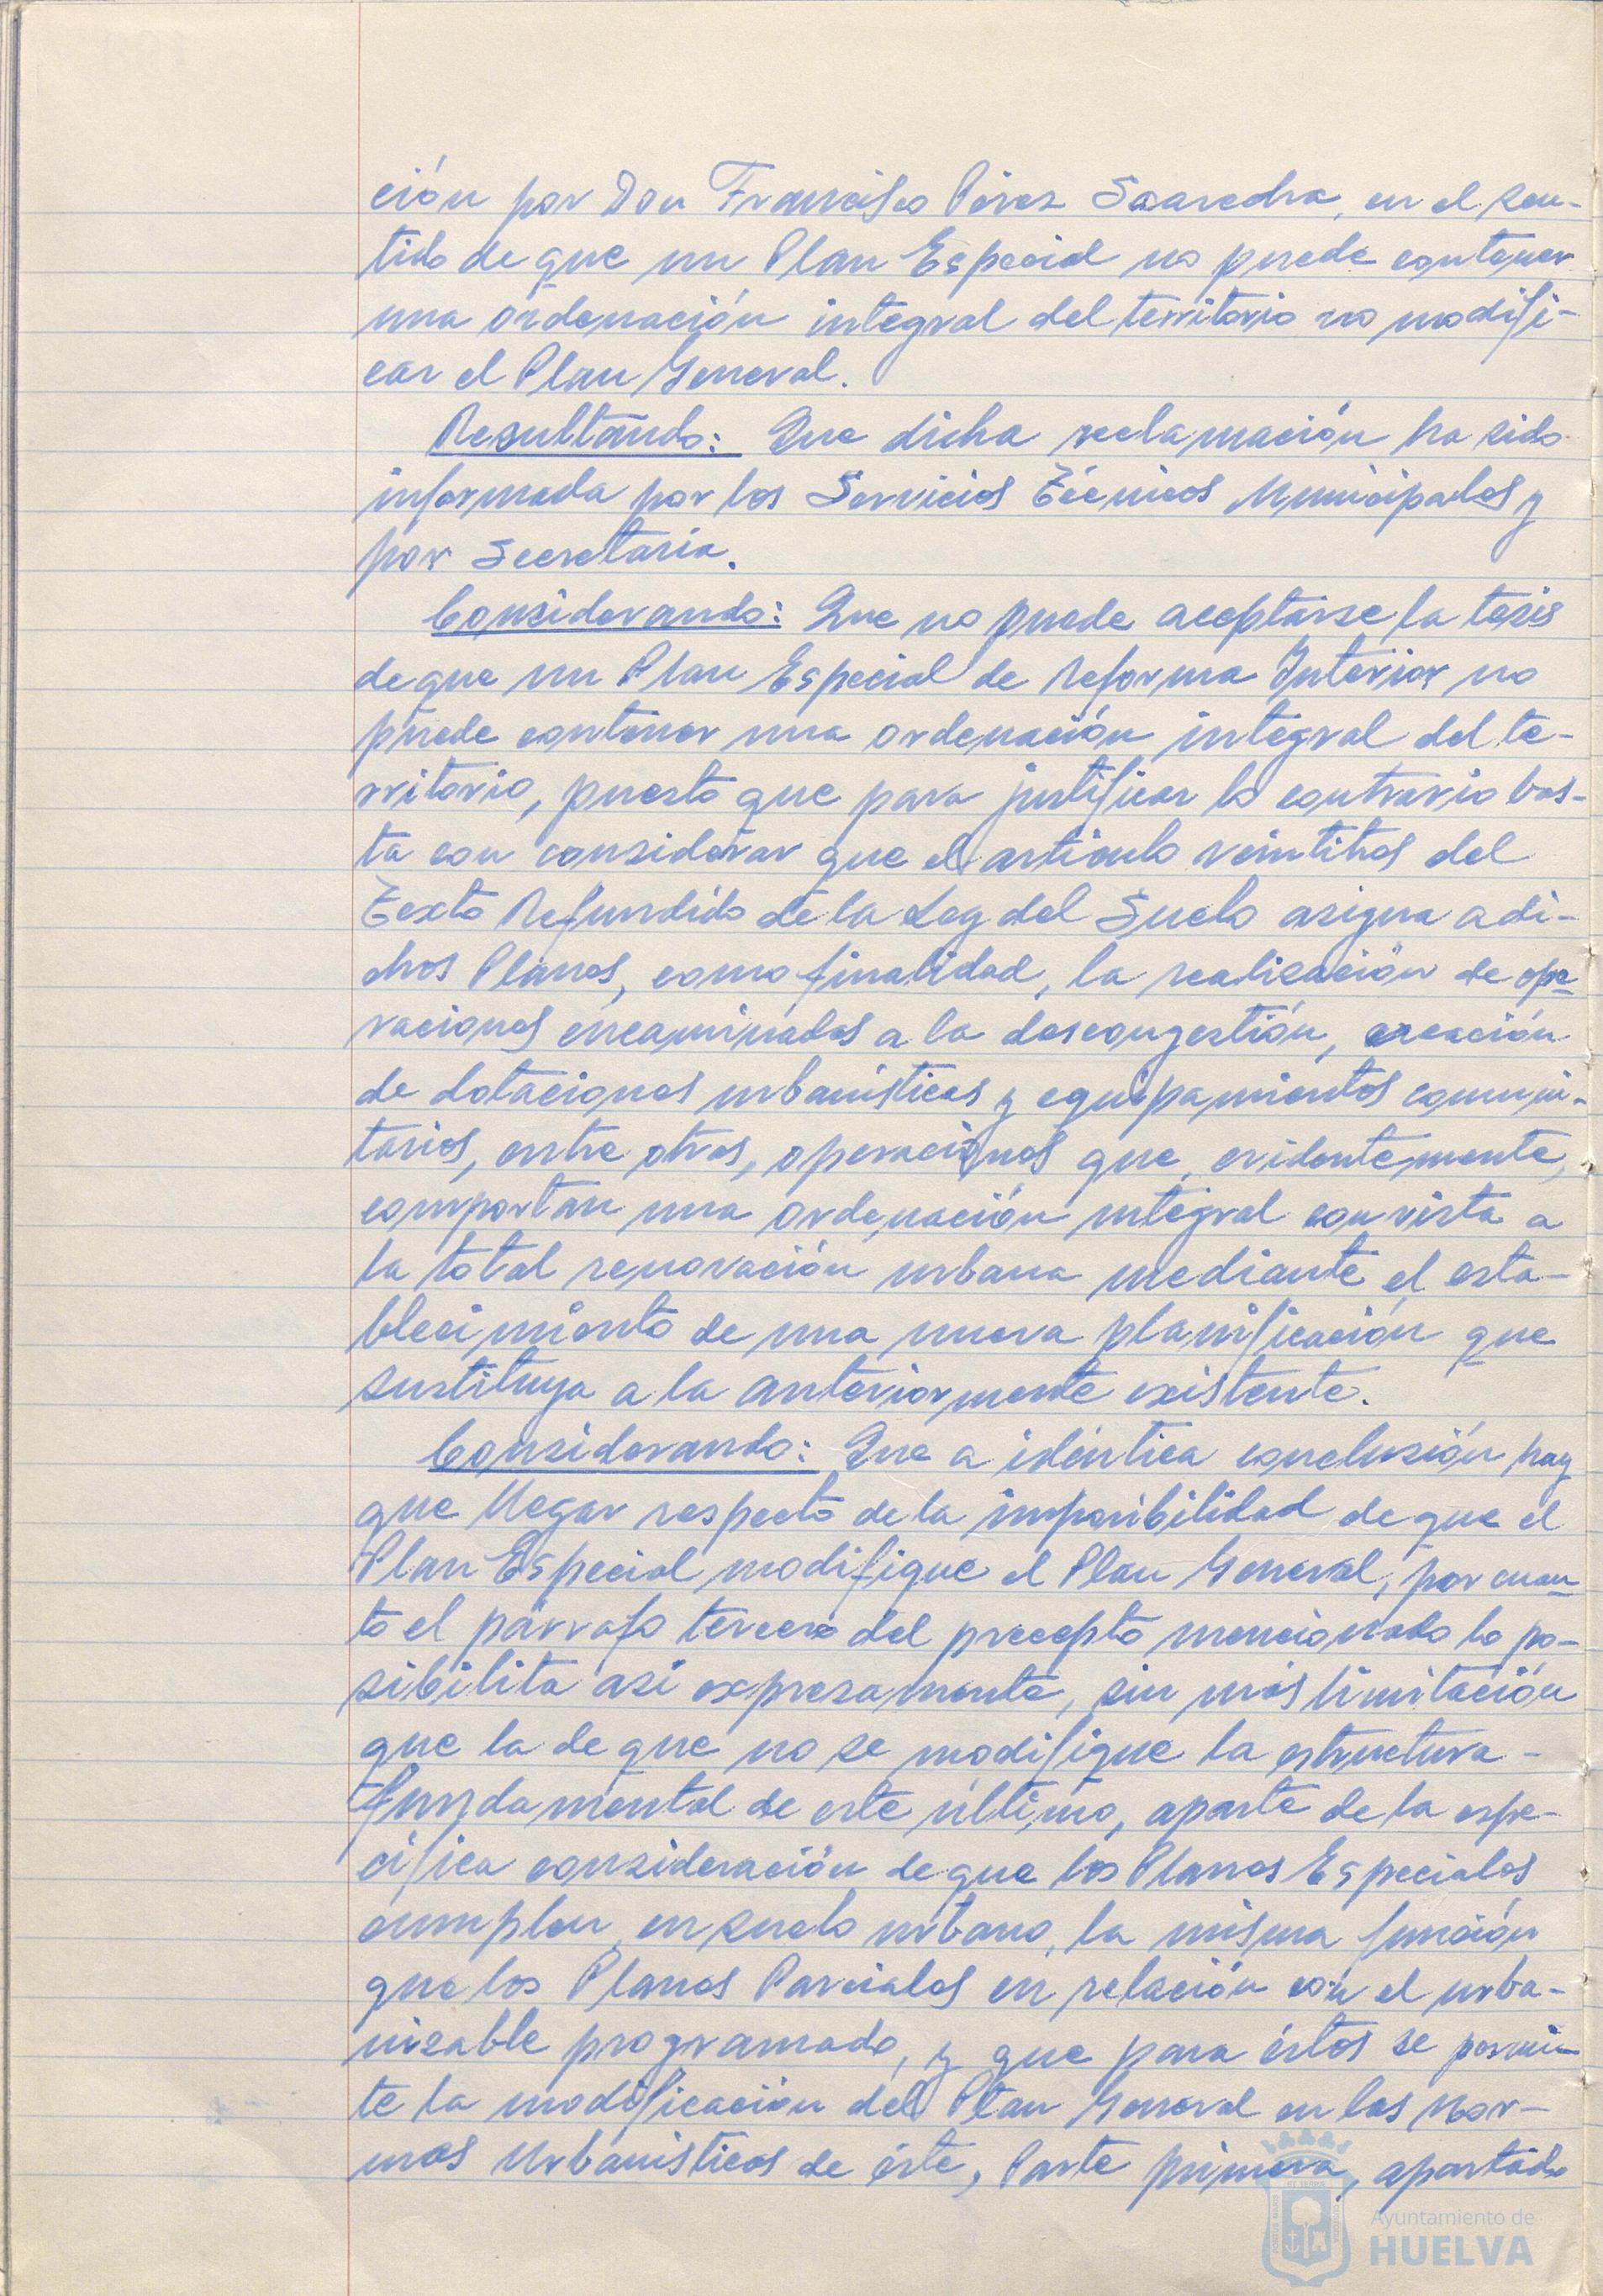 ción por Don Francisco Pérez Saavedra, en el sen-
tido de que un Plan Especial no puede contener
una ordenación integral del territorio no modifi-
car el Plan General.
Resultando: Que dicha reclamación ha sido
informada por los Servicios Técnicos Municipales y
por Secretaría.
Considerando: Que no puede aceptarse la tesis
de que un Plan Especial de Reforma Interior no
puede contener una ordenación integral del te-
rritorio, puesto que para justificar lo contrario bas-
ta con considerar que el artículo veintitres del
Texto Refundido de la Ley del Suelo asigna a di-
chos Planes, como finalidad, la realización de ope-
raciones encaminadas a la descongestión, creación
de dotaciones urbanísticas y equipamientos comuni-
tarios, entre otras, operaciones que, evidentemente,
comportan una ordenación integral con vista a
la total renovación urbana mediante el esta-
blecimiento de una nueva planificación que
sustituya a la anteriormente existente.
Considerando: Que a idéntica conclusión hay
que llegar respecto de la imposibilidad de que el
Plan Especial modifique el Plan General, por cuan-
to el párrafo tercero del precepto mencionado lo po-
sibilita asi expresamente, sin más limitación
que la de que no se modifique la estructura -
fundamental de este último, aparte de la espe-
cífica consideración de que los Planes Especiales
cumplen, en suelo urbano, la misma función
que los Planes Parciales en relación con el urba-
nizable programado, y que para éstos se permi-
te la modificación del Plan General en las Nor-
mas Urbanísticas de éste, Parte primera, apartado
Ayuntamiento de
HUELVA